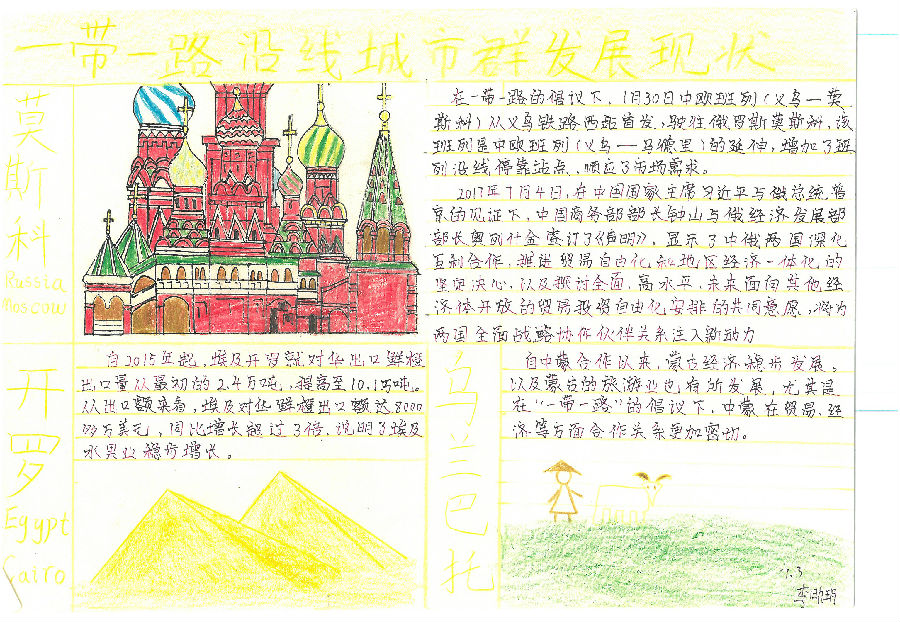 一带一路沿线城市群发展现状
莫斯科
Russia
Moscow
在一带一路的倡议下，1月30日中欧班列（义乌—莫
斯科）从义乌铁路西站首发，驶往俄罗斯莫斯科，该
班列是中欧班列（义乌——马德里）的延伸，增加了班
列沿线停靠站点，顺应了市场需求。
2017年7月4日，在中国国家主席习近平与俄总统普
京的见证下，中国商务部部长钟山与俄经济发展部
部长奥列什金签订了《声明》，显示了中俄两国深化
互利合作、推进贸易自由化和地区经济一体化的
坚定决心，以及探讨全面、高水平、未来面向其他经
济体开放的贸易投资自由化安排的共同意愿，将为
两国全面战略协作伙伴关系注入新动力
开罗
Egypt
Cairo
自2015年起，埃及开罗就对华出口鲜橙
出口量从最初的2.4万吨，提高至10.1万吨。
从出口额来看，埃及对华鲜橙出口额达8000
多万美元，同比增长超过3倍，说明了埃及
水果业稳步增长。
乌兰巴托
自中蒙合作以来，蒙古经济稳步发展。
以及蒙古的旅游业也有所发展，尤其是
在“一带一路”的倡议下，中蒙在贸易、经
济等方面合作关系更加密切。